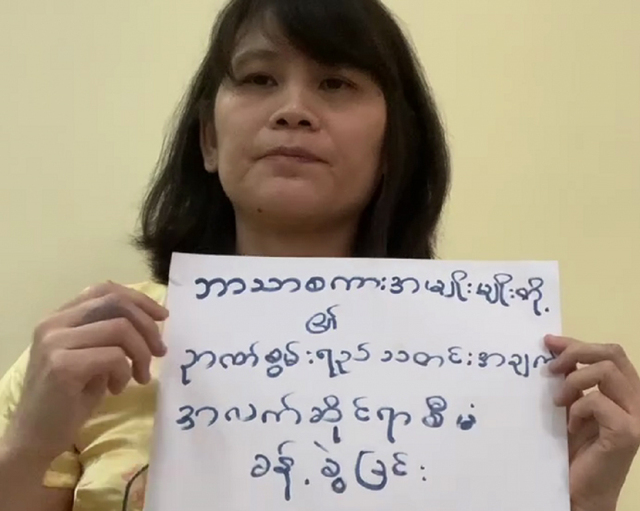 ဘာသာစကားအမျိုးမျိုးတို့
၏
ဉာဏ်စွမ်းရည်သတင်းအချက်
အလက်ဆိုင်ရာစီမံ
ခန့်ခွဲခြင်း